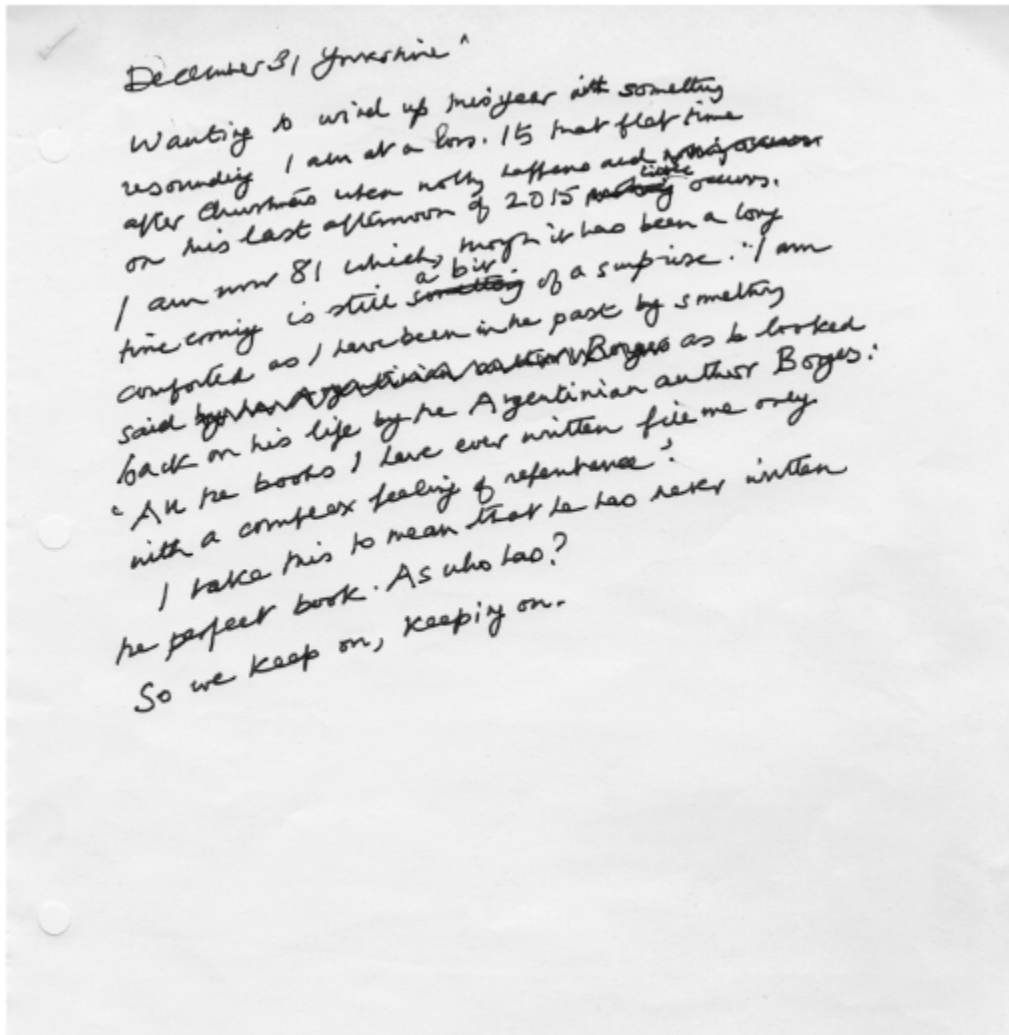 December 31 Yorkshire
Wanting to wind up this year with something
resounding I am at a loss. Its that flat time
after Christmas when nothing happens and
on this last afternoon of 2015 little occurs.
I am now 81 which, though it has been a long
time coming is still something a bit of a surprise. I am
comforted as I have been in the past by something
said by the Argentinian author Borges as he looked
back on his life by the Argentinian author Borges:
'All the books I have ever written fill me only
with a complex feeling of repentance'.
I take this to mean that he has never written
the perfect book. As who has?
So we keep on, keeping on.